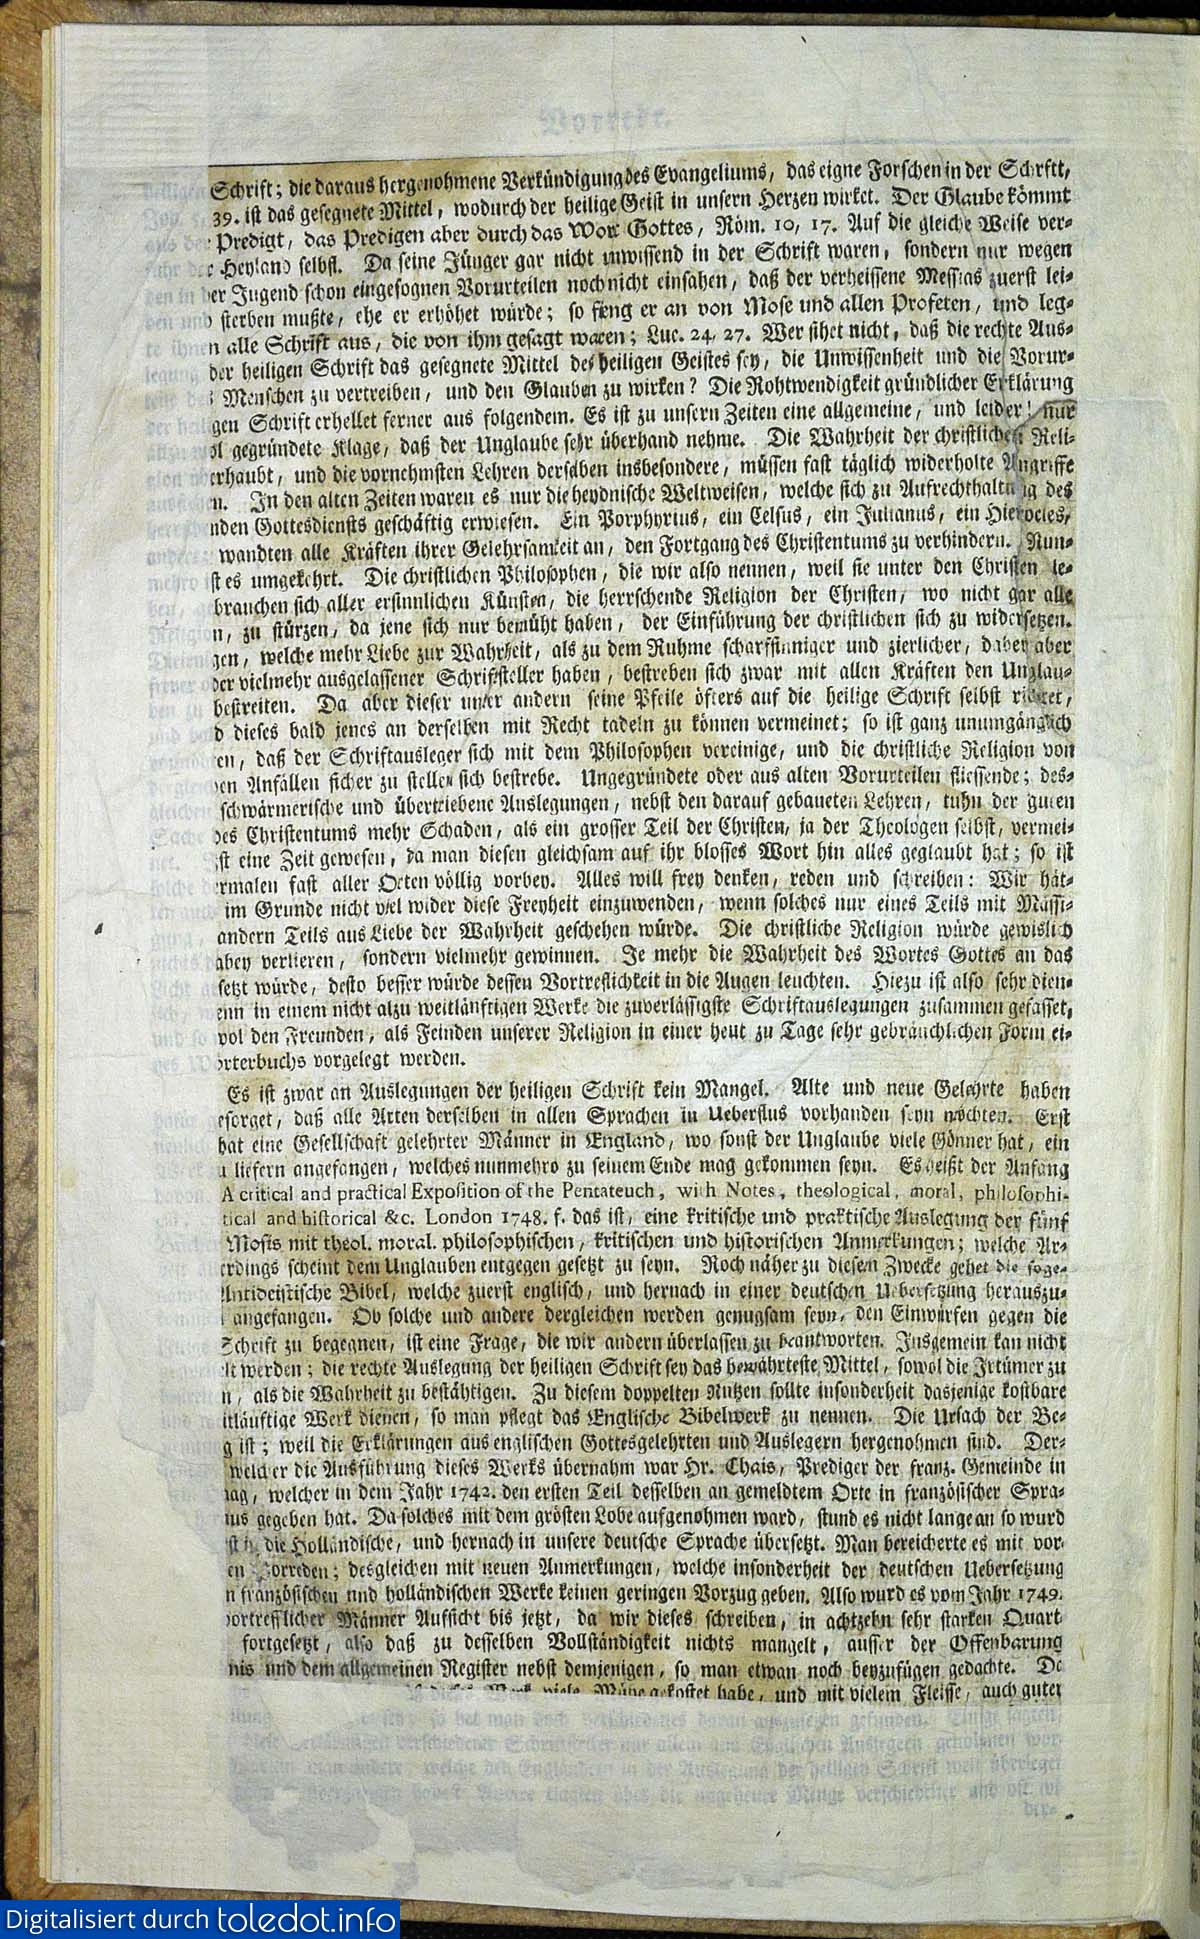 Vorrede.
Schrift; die daraus hergenohmene Verkündigung des Evangeliums, das eigne Forschen in der Schrift,
39. ist das gesegnete Mittel, wodurch der heilige Geist in unsern Herzen wirket. Der Glaube kömmt
Predigt, das Predigen aber durch das Wort Gottes, Röm. 10, 17. Auf die gleiche Weise ver-
r Heyland selbst. Da seine Jünger gar nicht unwissend in der Schrift waren, sondern nur wegen
er Jugend schon eingesognen Vorurteilen noch nicht einsahen, daß der verheissene Messias zuerst lei-
sterben mußte, ehe er erhöhet würde; so fieng er an von Mose und allen Profeten, und leg-
n alle Schrift aus, die von ihm gesagt waren; Luc. 24, 27. Wer sihet nicht, daß die rechte Aus-
der heiligen Schrift das gesegnete Mittel des heiligen Geistes sey, die Unwissenheit und die Vorur-
Menschen zu vertreiben, und den Glauben zu wirken? Die Nohtwendigkeit gründlicher Erklärung
gen Schrift erhellet ferner aus folgendem. Es ist zu unsern Zeiten eine allgemeine, und leider! nur
ol gegründete Klage, daß der Unglaube sehr überhand nehme. Die Wahrheit der christlichen Reli-
erhaubt, und die vornehmsten Lehren derselben insbesondere, müssen fast täglich widerholte Angriffe
n. In den alten Zeiten waren es nur die heydnische Weltweisen, welche sich zu Aufrechthaltung des
nden Gottesdiensts geschäftig erwiesen. Ein Porphyrius, ein Celsus, ein Julianus, ein Hierocles,
wandten alle Kräften ihrer Gelehrsamkeit an, den Fortgang des Christentums zu verhindern. Nun-
ist es umgekehrt. Die christlichen Philosophen, die wir also nennen, weil sie unter den Christen le-
brauchen sich aller ersinnlichen Künsten, die herrschende Religion der Christen, wo nicht gar alle
n, zu stürzen, da jene sich nur bemüht haben, der Einführung der christlichen sich zu widersetzen.
gen, welche mehr Liebe zur Wahrheit, als zu dem Ruhme scharfsinniger und zierlicher, dabey aber
der vielmehr ausgelassener Schriftsteller haben, bestreben sich zwar mit allen Kräften den Unglau-
bestreiten. Da aber dieser unter andern seine Pfeile öfters auf die heilige Schrift selbst richtet,
d dieses bald jenes an derselben mit Recht tadeln zu können vermeinet; so ist ganz unumgänglich
en, daß der Schriftausleger sich mit dem Philosophen vereinige, und die christliche Religion von
en Anfällen sicher zu stellen sich bestrebe. Ungegründete oder aus alten Vorurteilen fliessende; des-
schwärmerische und übertriebene Auslegungen, nebst den darauf gebaueten Lehren, tuhn der guten
des Christentums mehr Schaden, als ein grosser Teil der Christen, ja der Theologen selbst, vermei-
ist eine Zeit gewesen, da man diesen gleichsam auf ihr blosses Wort hin alles geglaubt hat; so ist
ermalen fast aller Orten völlig vorbey. Alles will frey denken, reden und schreiben: Wir hät-
im Grunde nicht viel wider diese Freyheit einzuwenden, wenn solches nur eines Teils mit Mässi-
andern Teils aus Liebe der Wahrheit geschehen würde. Die christliche Religion würde gewislich
abey verlieren, sondern vielmehr gewinnen. Je mehr die Wahrheit des Wortes Gottes an das
setzt würde, desto besser würde dessen Vortreflichkeit in die Augen leuchten. Hiezu ist also sehr dien-
enn in einem nicht alzu weitläuftigen Werke die zuverlässigste Schriftauslegungen zusammen gefasset,
vol den Freunden, als Feinden unserer Religion in einer heut zu Tage sehr gebräuchlichen Form ei-
örterbuchs vorgelegt werden.
Es ist zwar an Auslegungen der heiligen Schrift kein Mangel. Alte und neue Gelehrte haben
gesorget, daß alle Arten derselben in allen Sprachen in Ueberflus vorhanden seyn möchten. Erst
hat eine Gesellschaft gelehrter Männer in England, wo sonst der Unglaube viele Gönner hat, ein
u liefern angefangen, welches nunmehro zu seinem Ende mag gekommen seyn. Es heißt der Anfang
A critical and practical Exposition of the Pentateuch, with Notes, theological, moral, philosophi-
tical and historical &c. London 1748. f. das ist, eine kritische und praktische Auslegung der fünf
Mosis mit theol. moral. philosophischen, kritischen und historischen Anmerkungen; welche Ar-
erdings scheint dem Unglauben entgegen gesetzt zu seyn. Noch näher zu diesem Zwecke gehet die soge-
Antideistische Bibel, welche zuerst englisch, und hernach in einer deutschen Uebersetzung herauszu-
angefangen. Ob solche und andere dergleichen werden genugsam seyn, den Einwürfen gegen die
Schrift zu begegnen, ist eine Frage, die wir andern überlassen zu beantworten. Insgemein kan nicht
elt werden; die rechte Auslegung der heiligen Schrift sey das bewährteste Mittel, sowol die Irtümer zu
n, als die Wahrheit zu bestähtigen. Zu diesem doppelten Nutzen sollte insonderheit dasjenige kostbare
itläuftige Werk dienen, so man pflegt das Englische Bibelwerk zu nennen. Die Ursach der Be-
g ist; weil die Erklärungen aus englischen Gottesgelehrten und Auslegern hergenohmen sind. Der-
welcher die Ausführung dieses Werks übernahm war Hr. Chais, Prediger der franz. Gemeinde in
aag, welcher in dem Jahr 1742. den ersten Teil desselben an gemeldtem Orte in französischer Spra-
aus gegeben hat. Da solches mit dem grösten Lobe aufgenohmen ward, stund es nicht lange an so wurd
st in die Holländische, und hernach in unsere deutsche Sprache übersetzt. Man bereicherte es mit vor-
en Vorreden; desgleichen mit neuen Anmerkungen, welche insonderheit der deutschen Uebersetzung
n französischen und holländischen Werke keinen geringen Vorzug geben. Also wurd es vom Jahr 1749.
vortrefflicher Männer Aufsicht bis jetzt, da wir dieses schreiben, in achtzehn sehr starken Quart
fortgesetzt, also daß zu desselben Vollständigkeit nichts mangelt, ausser der Offenbarung
nis und dem allgemeinen Register nebst demjenigen, so man etwan noch beyzufügen gedachte. De
dieses Werk viele Mühe gekostet habe, und mit vielem Fleisse, auch guter
so hat man doch verschiedenes daran auszusetzen gefunden. Einige sagten,
verschiedener Schriftsteller nur allein aus Englischen Auslegern genohmen wor-
man andere, welche den Engländern in der Auslegung der heiligen Schrift weit überlegen
Andere klagten über die ungeheure Menge verschiedener und oft wi-
der-
Digitalisiert durch toledot.info